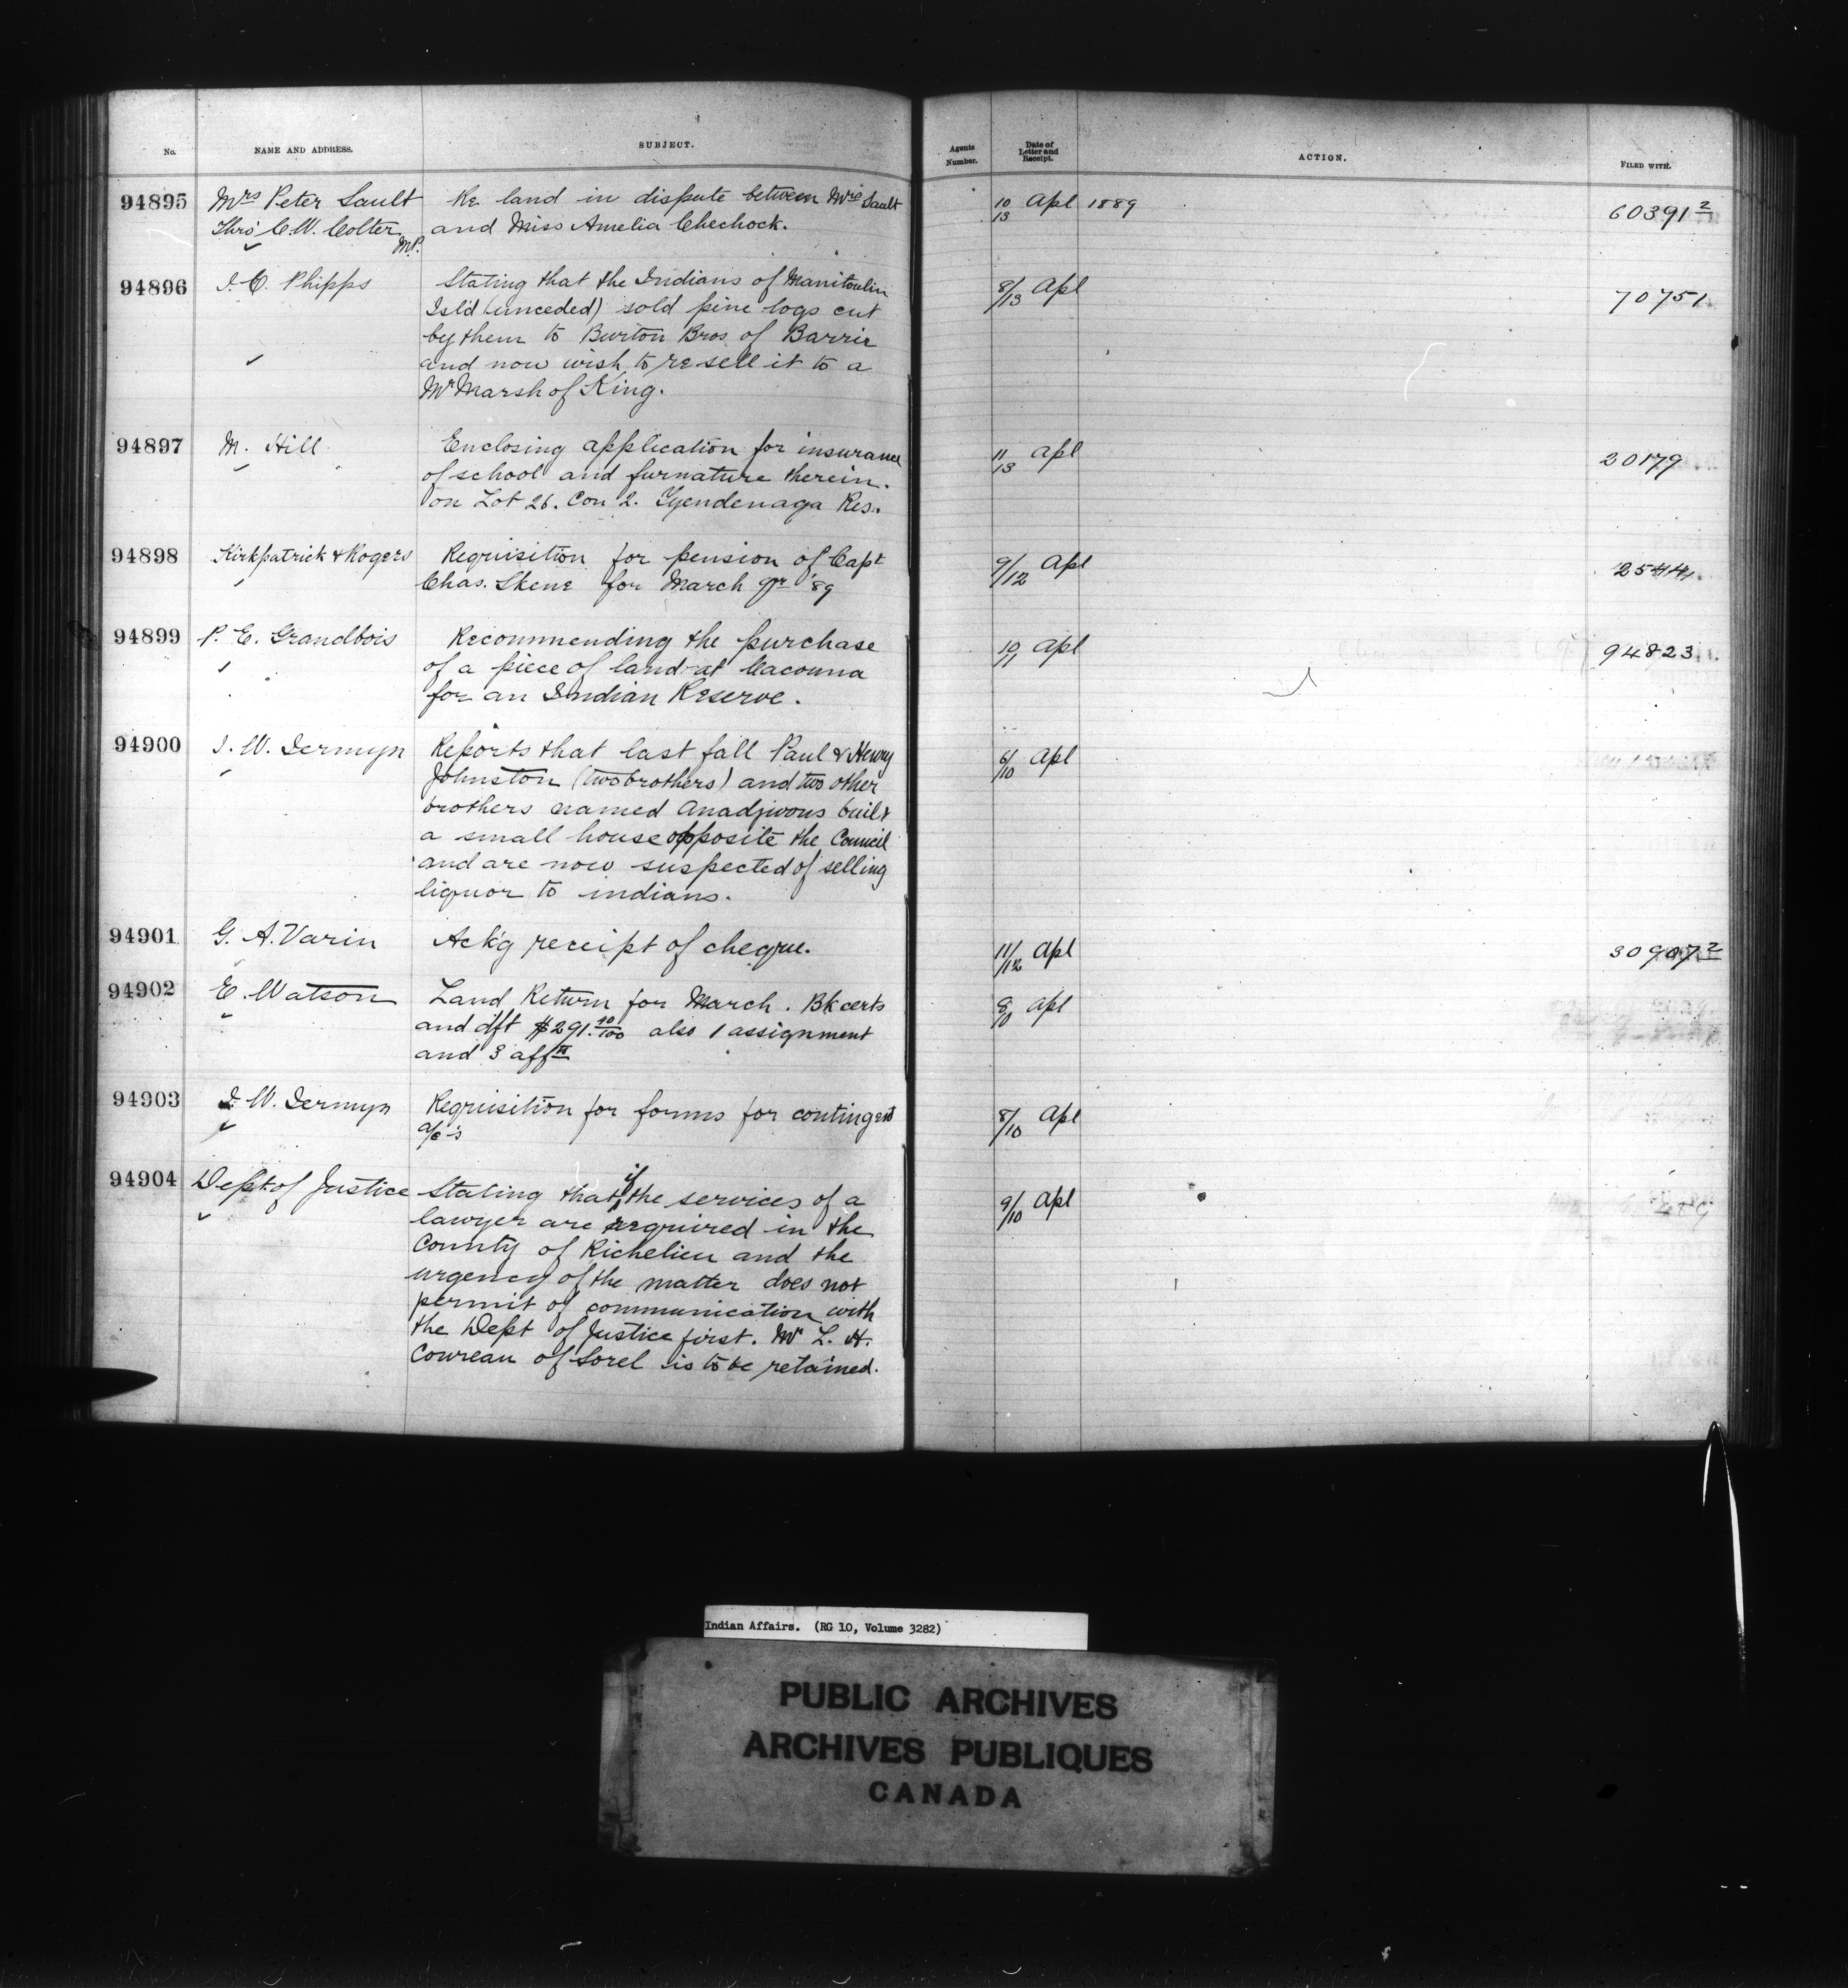 No. NAME AND ADDRESS. SUBJECT. Agents Number. Date of Letter and Receipt. ACTION. FILED WITH.
94895 Mrs Peter Sault Re land in dispute between Mrs Sault 10/13 Apl 1889 60391 2
Thro' C.W. Colter M.P. and Miss Amelia Chechock.
94896 J. C. Phipps Stating that the Indians of Manitoulin 8/13 Apl 70751.
Isl'd (unceded) sold pine logs cut
by them to Burton Bros. of Barrie
and now wish to re sell it to a
Mr Marsh of King.
94897 M. Hill Enclosing application for insurance 11/13 Apl 20179
of school and furnature therein.
on Lot 26. Con 2. Tyendenaga Res.
94898 Kirkpatrick & Rogers Requisition for pension of Capt 9/12 Apl 2544.
Chas. Skene for March qr '89
94899 P. E. Grandbois Recommending the purchase 10/11 Apl 94823
of a piece of land at Cacouna
for an Indian Reserve.
94900 J. W. Jermyn Reports that last fall Paul & Henry 6/10 Apl
Johnston (two brothers) and two other
brothers named Anadjwous built
a small house opposite the Council
and are now suspected of selling
liquor to indians.
94901 G. A. Varin Ack'g receipt of cheque. 11/12 Apl 30907 2
94902 E. Watson Land Return for March. Bk certs 8/10 Apl
and dft $291.40/100 also 1 assignment
and 3 affts
94903 J. W. Jermyn Requisition for forms for contingent 8/10 Apl
a/c's
94904 Dept of Justice Stating that if the services of a 9/10 Apl
lawyer are required in the
County of Richelieu and the
urgency of the matter does not
permit of communication with
the Dept of Justice first. Mr L. H.
Coureau of Sorel is to be retained.
Indian Affairs. (RG 10, Volume 3282)
PUBLIC ARCHIVES
ARCHIVES PUBLIQUES
CANADA